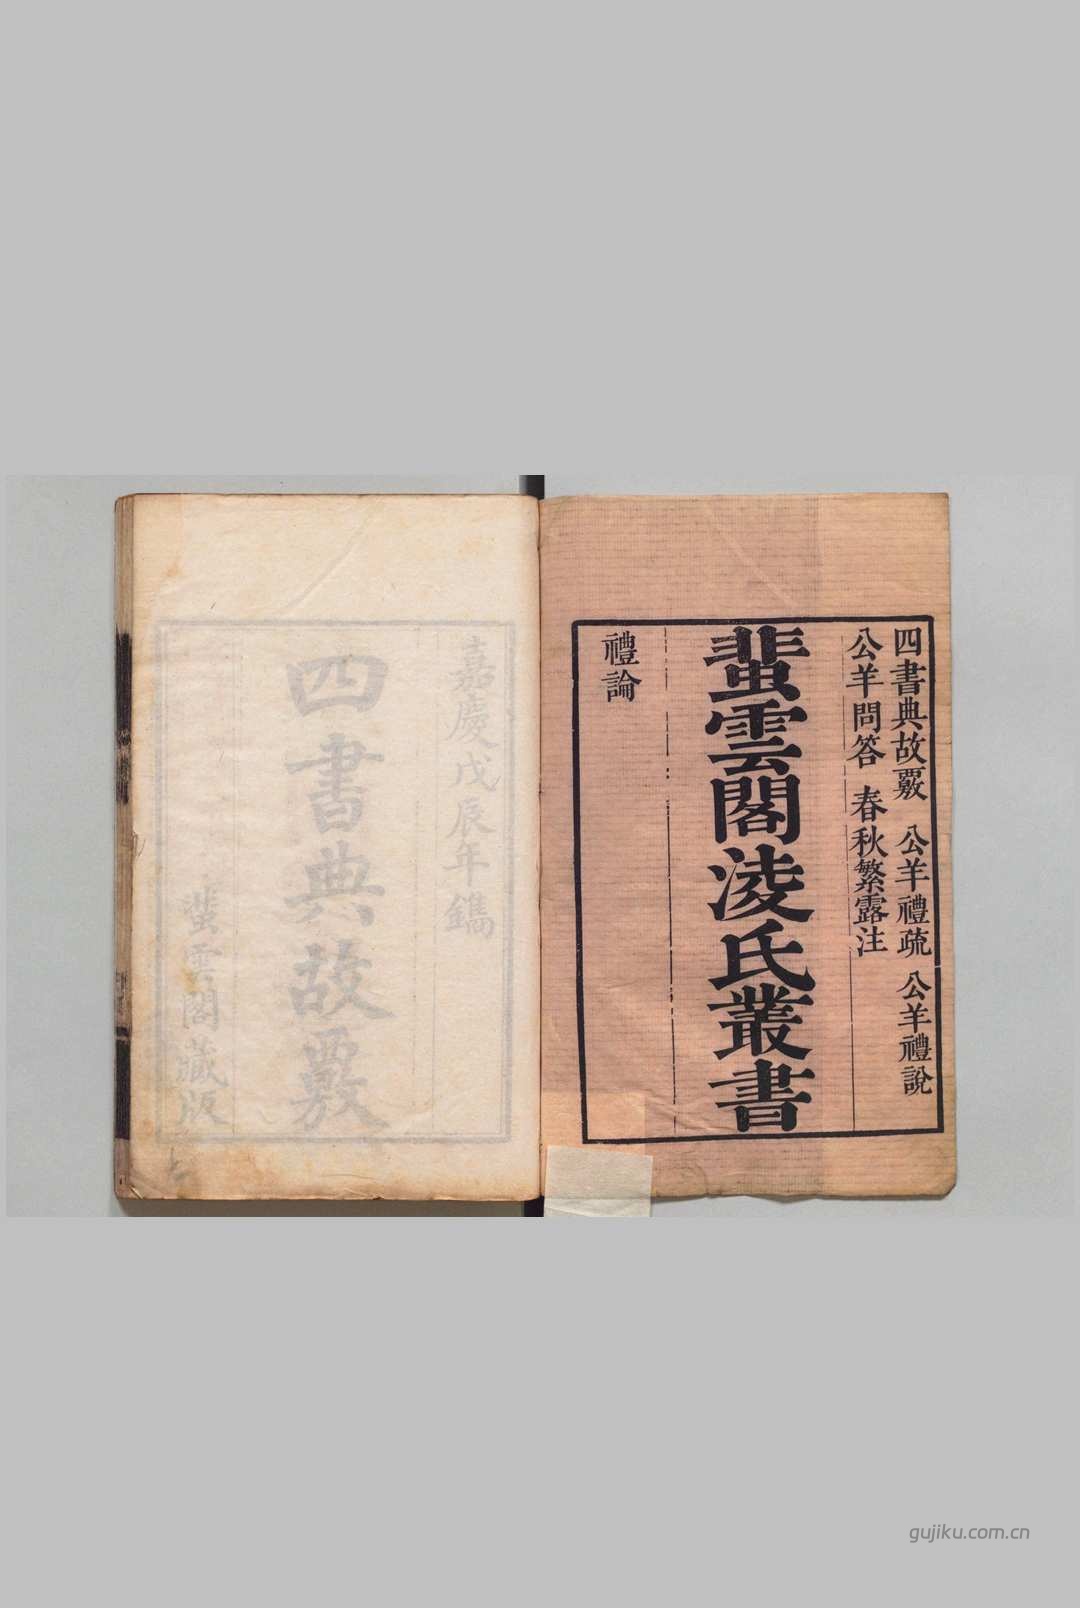 四書典故覈 公羊禮疏 公羊禮說
公羊問答 春秋繁露注
蜚雲閣淩氏叢書
禮論
嘉慶戊辰年鐫
四書典故覈
蜚雲閣藏版
gujiku.com.cn